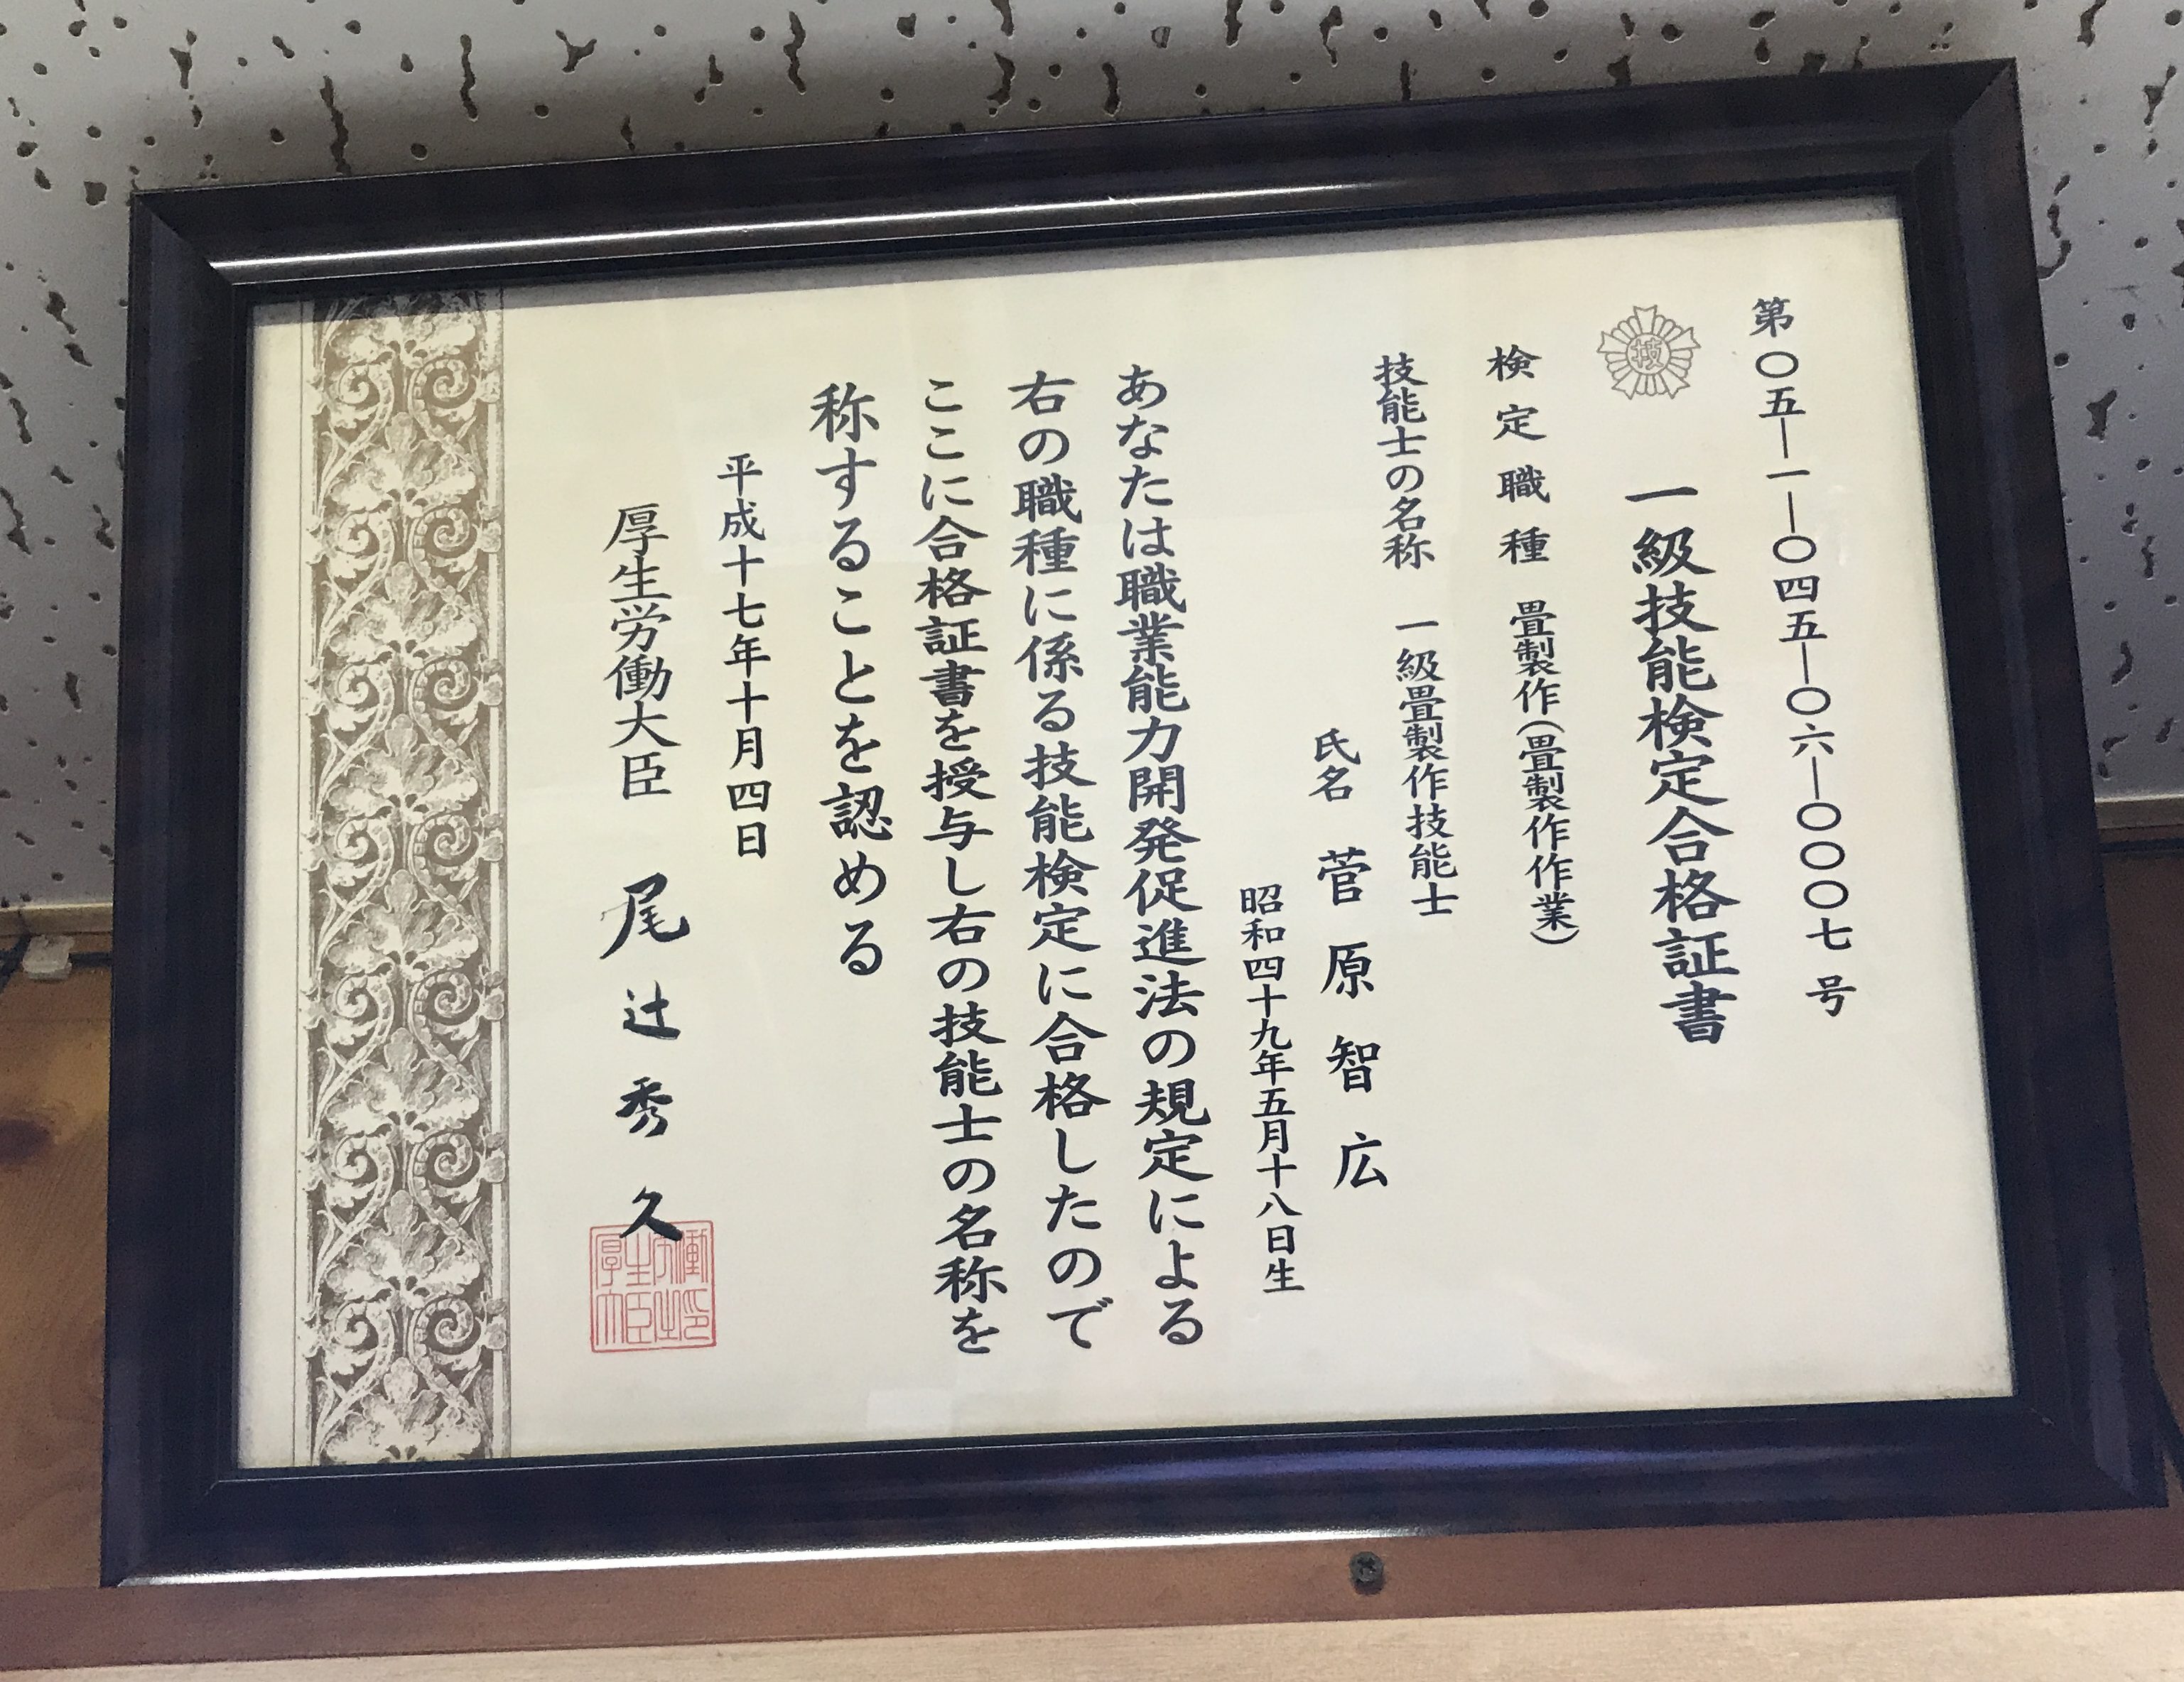 第〇五―一―〇四五―〇六―〇〇〇七号
技
一級技能検定合格証書
検定職種 畳製作(畳製作作業)
技能士の名称 一級畳製作技能士
氏名 菅原智広
昭和四十九年五月十八日生
あなたは職業能力開発促進法の規定による
右の職種に係る技能検定に合格したので
ここに合格証書を授与し右の技能士の名称を
称することを認める
平成十七年十月四日
厚生労働大臣 尾辻秀久